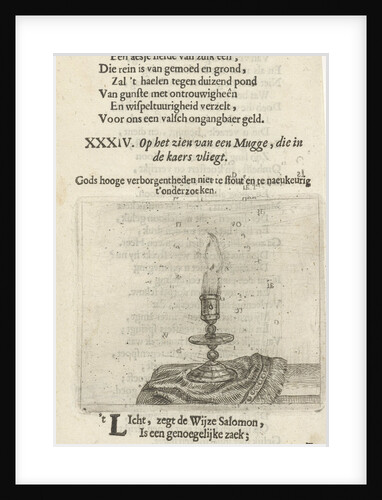 Een aesje liefde van zulk een,
Die rein is van gemoed en grond,
Zal 't haelen tegen duizend pond
Van gunste met ontrouwigheên
En wispeltuurigheid verzelt,
Voor ons een valsch ongangbaer geld.
XXXIV. Op het zien van een Mugge, die in
de kaers vliegt.
Gods hooge verborgentheden niet te stout en te naeukeurig
t'onderzoeken.
't LIcht, zegt de Wijze Salomon,
Is een genoegelijke zaek;